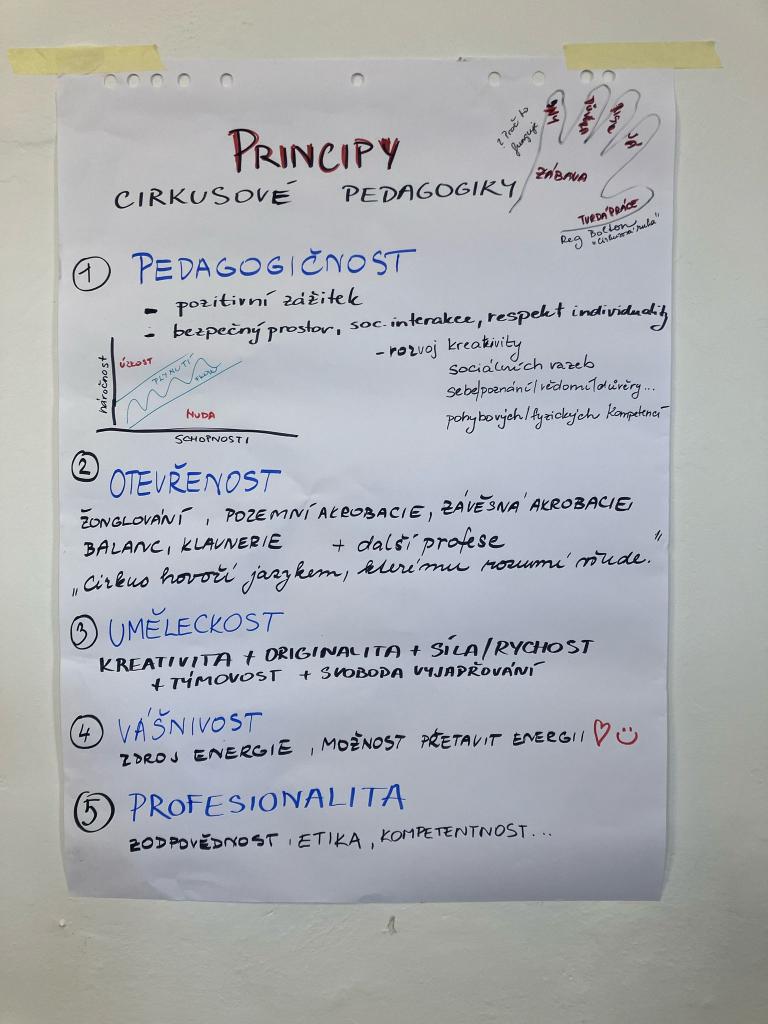 PRINCIPY
CIRKUSOVÉ PEDAGOGIKY
? Proč to
funguje
SNY
DŮVĚRA
RISK
JÁ
ZÁBAVA
TVRDÁ PRÁCE
Reg Bolton
"Cirkusová ruka"
1 PEDAGOGIČNOST
- pozitivní zážitek
- bezpečný prostor, soc. interakce, respekt individuality
- rozvoj kreativity
sociálních vazeb
sebe/poznání/vědomí/důvěry...
pohybových/fyzických kompetencí
náročnost
ÚZKOST
PLYNUTÍ
FLOW
NUDA
SCHOPNOSTI
2 OTEVŘENOST
ŽONGLOVÁNÍ, POZEMNÍ AKROBACIE, ZÁVĚSNÁ AKROBACIE,
BALANC, KLAUNERIE + další profese
„Cirkus hovoří jazykem, kterému rozumí všude."
3 UMĚLECKOST
KREATIVITA + ORIGINALITA + SÍLA/RYCHOST
+ TÝMOVOST + SVOBODA VYJAPŘOVÁNÍ
4 VÁŠNIVOST
ZDROJ ENERGIE, MOŽNOST PŘETAVIT ENERGII
5 PROFESIONALITA
ZODPOVĚDNOST, ETIKA, KOMPETENTNOST...